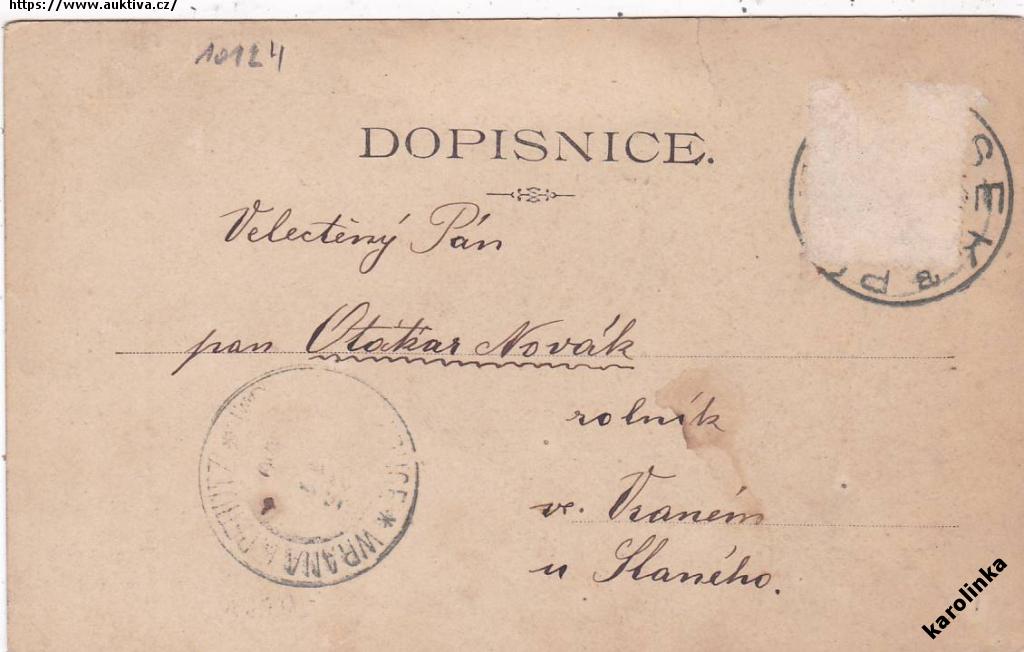 https://www.auktiva.cz/
10124
DOPISNICE.
Velectěný Pán
pan Otakar Novák
rolník
ve Vraném
u Slaného.
WRANA
karolinka